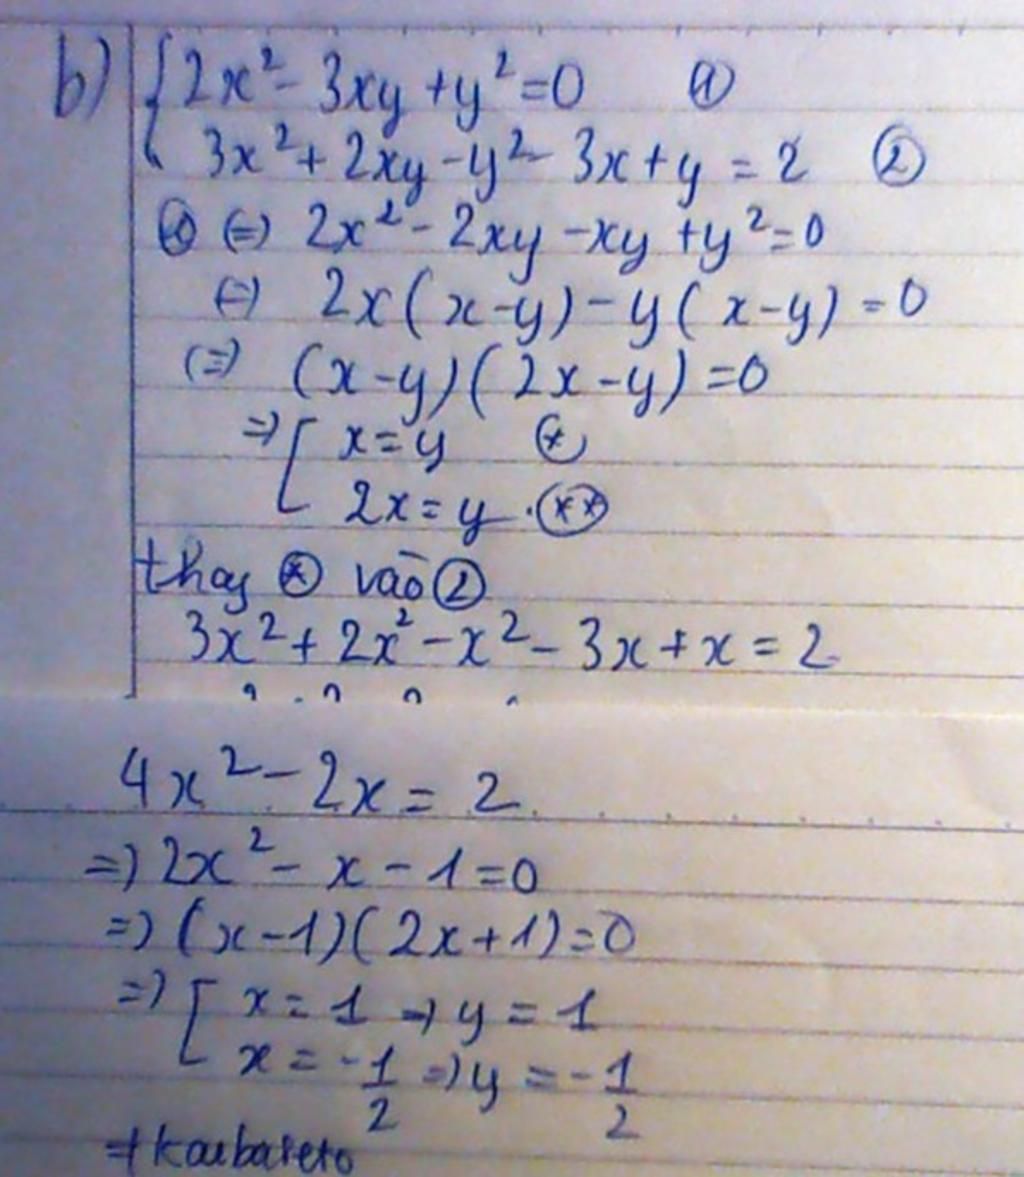 b) { 2x² - 3xy + y² = 0 ①
3x² + 2xy - y² - 3x + y = 2 ②
① (=) 2x² - 2xy - xy + y² = 0
(=) 2x(x-y) - y(x-y) = 0
(=) (x-y)(2x-y) = 0
=) [ x = y (*)
2x = y. (**)
thay (*) vào ②
3x² + 2x² - x² - 3x + x = 2
4x² - 2x = 2.
=) 2x² - x - 1 = 0
=) (x-1)(2x+1) = 0
=) [ x = 1 => y = 1
x = -1/2 =) y = -1/2